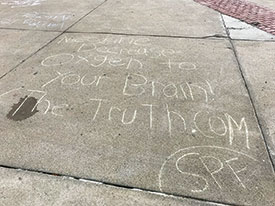 Decrease
Oxygen to
Your Brain!
The Truth.COM
SPF